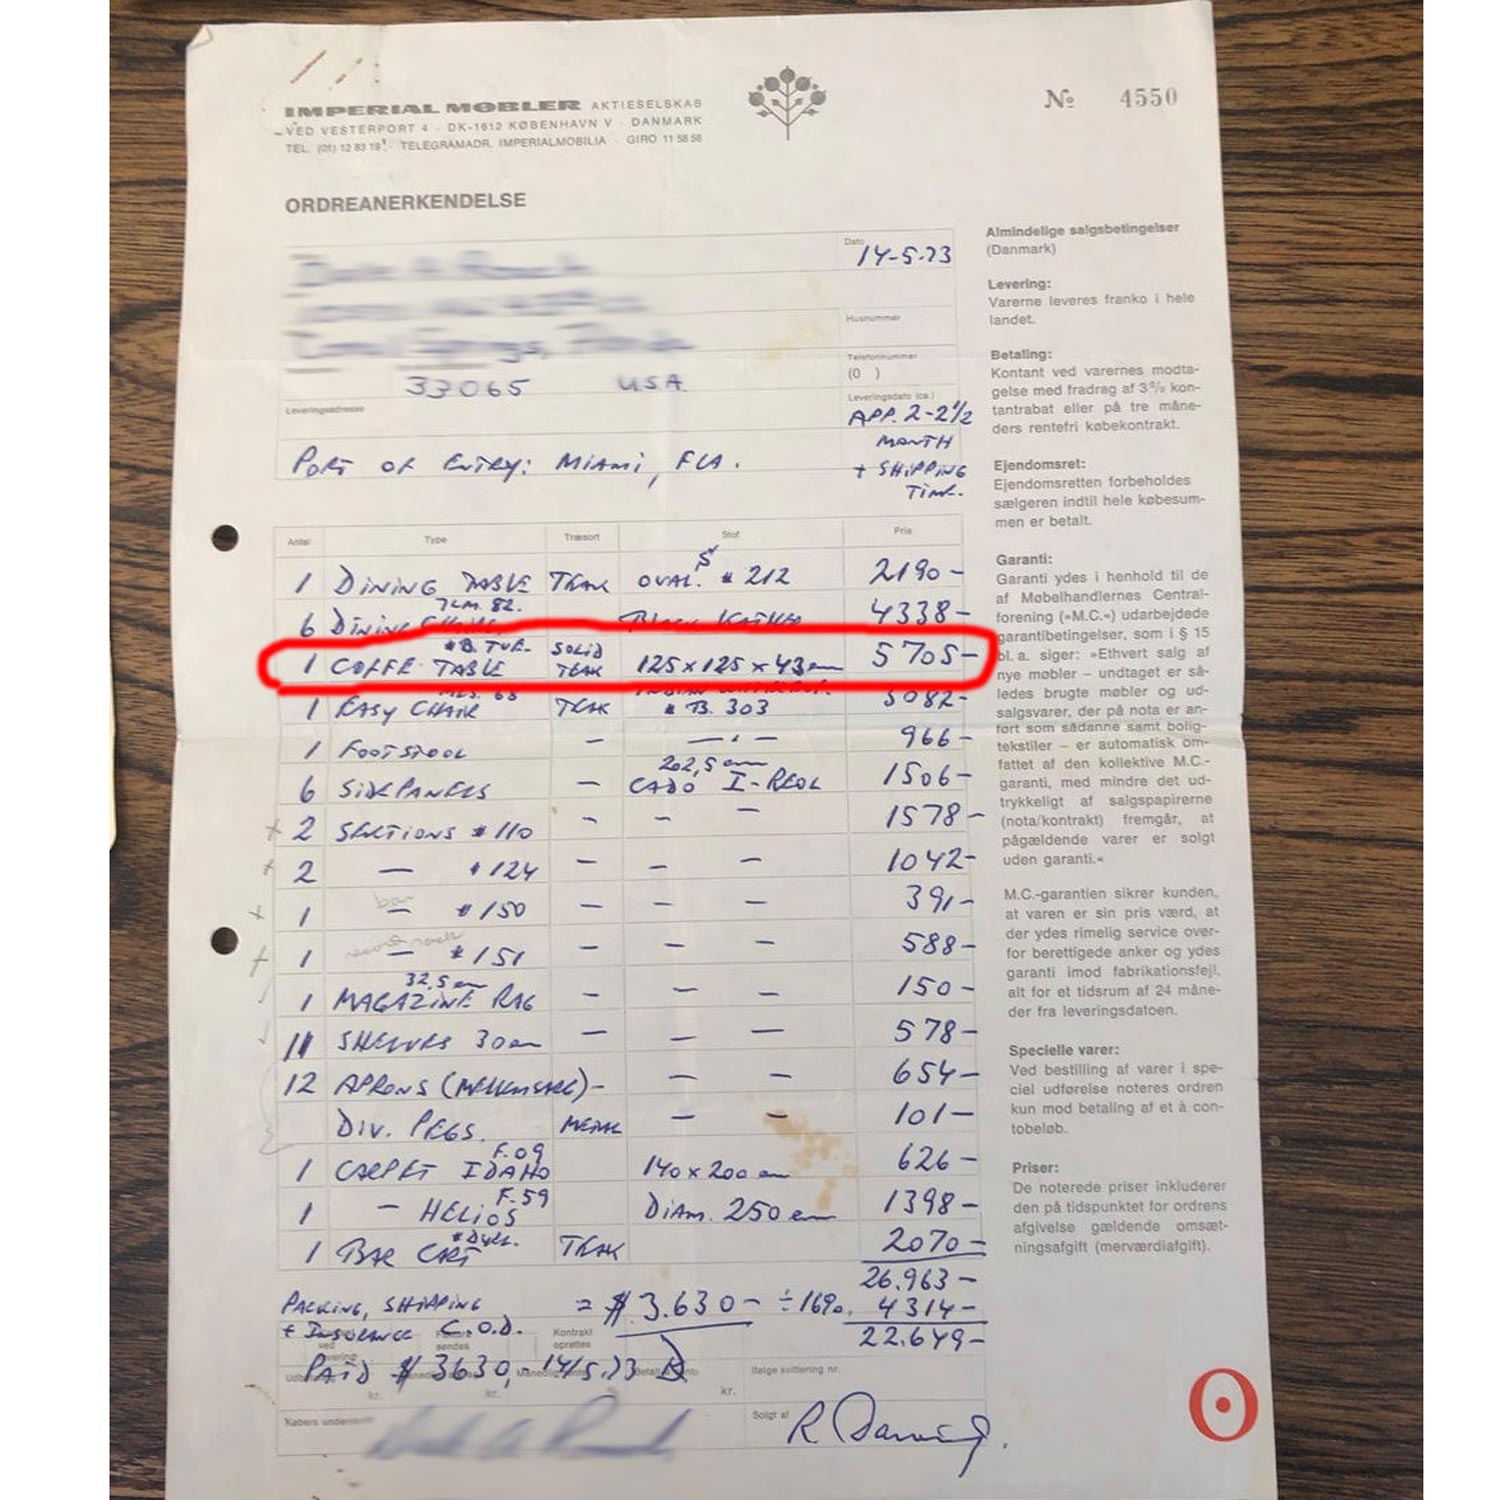 IMPERIAL MØBLER AKTIESELSKAB
VED VESTERPORT 4 · DK-1612 KØBENHAVN V · DANMARK
TEL. (01) 12 83 19 · TELEGRAMADR. IMPERIALMOBILIA · GIRO 11 58 58
№ 4550
ORDREANERKENDELSE
Dato
14-5-73
Husnummer
Telefonnummer
(0 )
33065 USA.
Leveringsadresse
Leveringsdato (ca.)
APP. 2-2½
MONTH
+ SHIPPING
TIME.
PORT OF ENTRY: MIAMI, FLA.
Antal Type Træsort Stof Pris
1 DINING TABLE TEAK OVAL. # 212 2190-
6 DINING CHAIRS 4338-
1 COFFE TABLE SOLID TEAK 125 x 125 x 43 cm 5705-
1 EASY CHAIR TEAK # B. 303 5082-
1 FOOTSTOOL - - " - 966-
202,5 cm
6 SIDEPANELS - CADO I-REOL 1506-
2 SECTIONS # 110 - - - 1578-
2 — # 124 - - - 1042-
bar
1 — # 150 - - - 391-
1 — # 151 - - - 588-
32,5 cm
1 MAGAZINE RAG - - - 150-
11 SHELVES 30 cm - - - 578-
12 APRONS - - - 654-
DIV. PEGS. METAL - - 101-
F.09
1 CARPET IDAHO 140 x 200 cm 626-
F.59
1 - HELIOS DIAM. 250 cm 1398-
1 BAR CART TEAK 2070-
26.963-
PACKING, SHIPPING = $ 3.630- ÷ 16% 4314-
+ INSURANCE C.O.D. 22.649-
Kontrakt
oprettes
PAID $ 3630,- 14/5.73
Ifølge kvittering nr.
kr. kr. kr.
Købers underskrift
Solgt af
Almindelige salgsbetingelser
(Danmark)
Levering:
Varerne leveres franko i hele
landet.
Betaling:
Kontant ved varernes modta-
gelse med fradrag af 3% kon-
tantrabat eller på tre måne-
ders rentefri købekontrakt.
Ejendomsret:
Ejendomsretten forbeholdes
sælgeren indtil hele købesum-
men er betalt.
Garanti:
Garanti ydes i henhold til de
af Møbelhandlernes Central-
forening (»M.C.«) udarbejdede
garantibetingelser, som i § 15
bl. a. siger: »Ethvert salg af
nye møbler – undtaget er så-
ledes brugte møbler og ud-
salgsvarer, der på nota er an-
ført som sådanne samt bolig-
tekstiler – er automatisk om-
fattet af den kollektive M.C.-
garanti, med mindre det ud-
trykkeligt af salgspapirerne
(nota/kontrakt) fremgår, at
pågældende varer er solgt
uden garanti.«
M.C.-garantien sikrer kunden,
at varen er sin pris værd, at
der ydes rimelig service over-
for berettigede anker og ydes
garanti imod fabrikationsfejl,
alt for et tidsrum af 24 måne-
der fra leveringsdatoen.
Specielle varer:
Ved bestilling af varer i spe-
ciel udførelse noteres ordren
kun mod betaling af et à con-
tobeløb.
Priser:
De noterede priser inkluderer
den på tidspunktet for ordrens
afgivelse gældende omsæt-
ningsafgift (merværdiafgift).